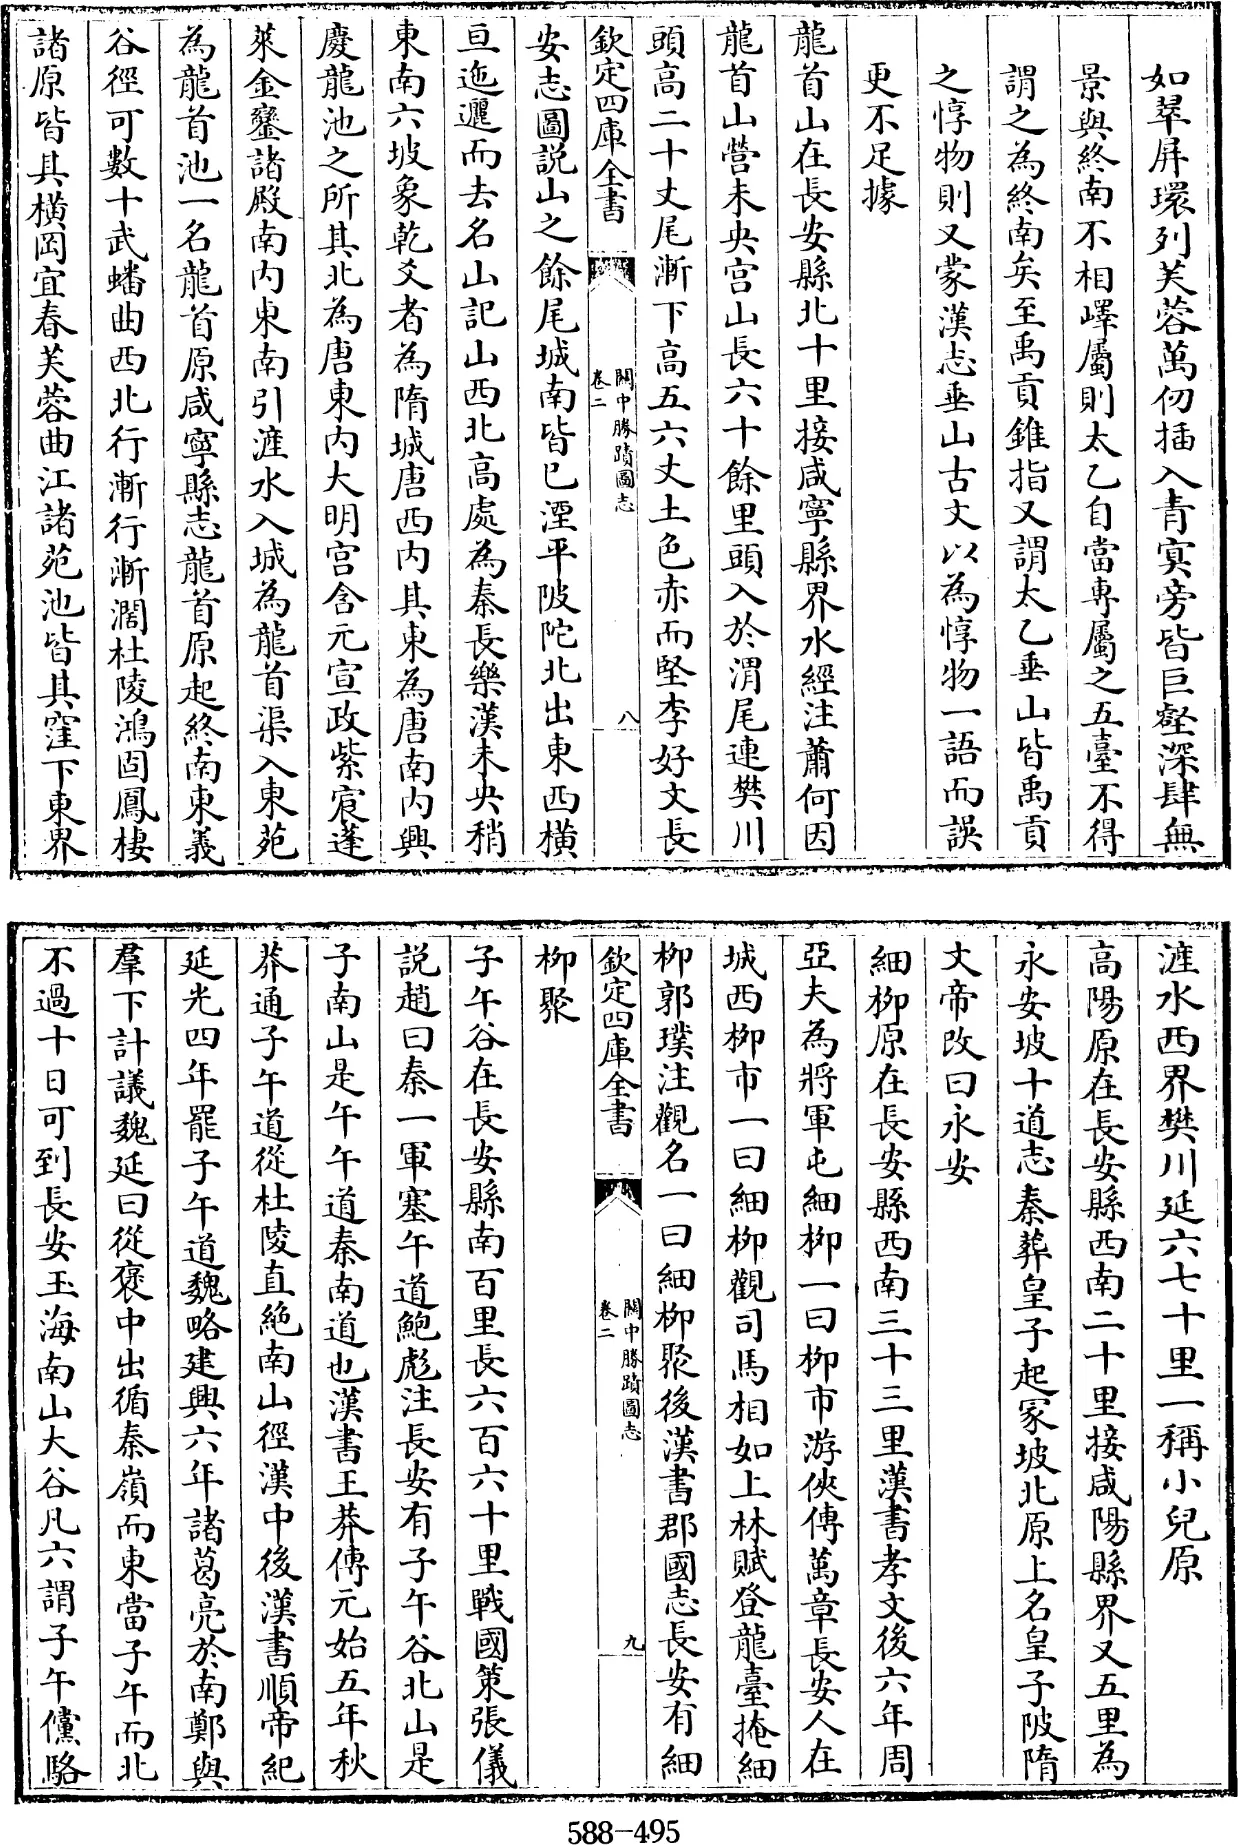 如翠屏環列芙蓉萬仞插入青㝠旁皆巨壑深肆無
景與終南不相嶧屬則太乙自當專屬之五臺不得
謂之為終南矣至禹貢錐指又謂太乙垂山皆禹貢
之惇物則又蒙漢志垂山古文以為惇物一語而誤
更不足據
龍首山在長安縣北十里接咸寧縣界水經注蕭何因
龍首山營未央宫山長六十餘里頭入於渭尾連樊川
頭高二十丈尾漸下高五六丈土色赤而堅李好文長
欽定四庫全書
關中勝蹟圖志
卷二
八
安志圖説山之餘尾城南皆已湮平陂陀北出東西橫
亘迤邐而去名山記山西北高處為秦長樂漢未央稍
東南六坡象乾爻者為隋城唐西内其東為唐南内興
慶龍池之所其北為唐東内大明宫含元宣政紫宸蓬
萊金鑾諸殿南内東南引滻水入城為龍首渠入東苑
為龍首池一名龍首原咸寧縣志龍首原起終南東義
谷徑可數十武蟠曲西北行漸行漸濶杜陵鴻固鳳棲
諸原皆其横岡宜春芙蓉曲江諸苑池皆其窪下東界
滻水西界樊川延六七十里一稱小兒原
高陽原在長安縣西南二十里接咸陽縣界又五里為
永安坡十道志秦葬皇子起冢坡北原上名皇子陂隋
文帝改曰永安
細栁原在長安縣西南三十三里漢書孝文後六年周
亞夫為將軍屯細栁一曰栁市游俠傳萬章長安人在
城西栁市一曰細栁觀司馬相如上林賦登龍臺掩細
栁郭璞注觀名一曰細栁聚後漢書郡國志長安有細
欽定四庫全書
關中勝蹟圖志
卷二
九
栁聚
子午谷在長安縣南百里長六百六十里戰國策張儀
説趙曰秦一軍塞午道鮑彪注長安有子午谷北山是
子南山是午午道秦南道也漢書王莽傳元始五年秋
莽通子午道從杜陵直絶南山徑漢中後漢書順帝紀
延光四年罷子午道魏略建興六年諸葛亮於南鄭與
羣下計議魏延曰從褒中出循秦嶺而東當子午而北
不過十日可到長安玉海南山大谷凡六謂子午儻駱
588-495